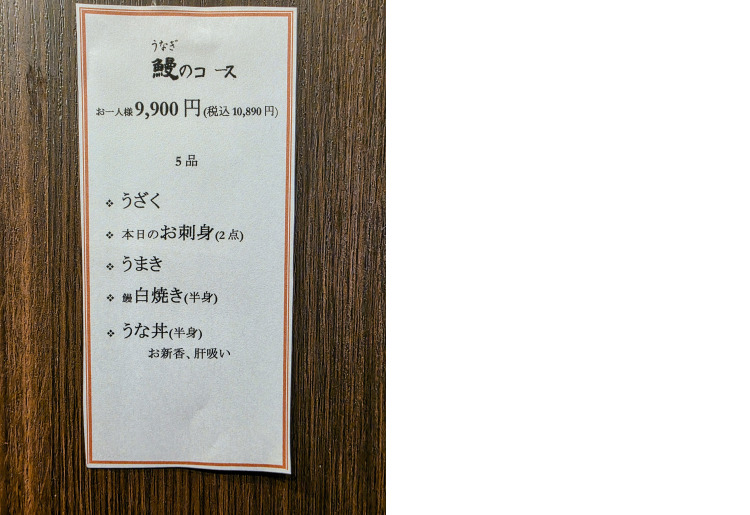 うなぎ
鰻のコース
お一人様9,900円(税込10,890円)
5品
❖ うざく
❖ 本日のお刺身(2点)
❖ うまき
❖ 鰻白焼き(半身)
❖ うな丼(半身)
お新香、肝吸い